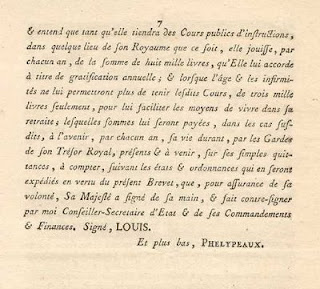 7
& entend que tant qu'elle tiendra des Cours publics d'instructions,
dans quelque lieu de son Royaume que ce soit, elle jouisse, par
chacun an, de la somme de huit mille livres, qu'Elle lui accorde
à titre de gratification annuelle; & lorsque l'âge & les infirmi-
tés ne lui permettront plus de tenir lesdits Cours, de trois mille
livres seulement, pour lui faciliter les moyens de vivre dans sa
retraite; lesquelles sommes lui seront payées, dans les cas sus-
dits, à l'avenir, par chacun an, sa vie durant, par les Gardes
de son Trésor Royal, présents & à venir, sur ses simples quit-
tances, à compter, suivant les états & ordonnances qui en seront
expédiés en vertu du présent Brevet, que, pour assurance de sa
volonté, Sa Majesté a signé de sa main, & fait contre-signer
par moi Conseiller-Secretaire d'Etat & de ses Commandements
& Finances. Signé, LOUIS.
Et plus bas, PHELYPEAUX.